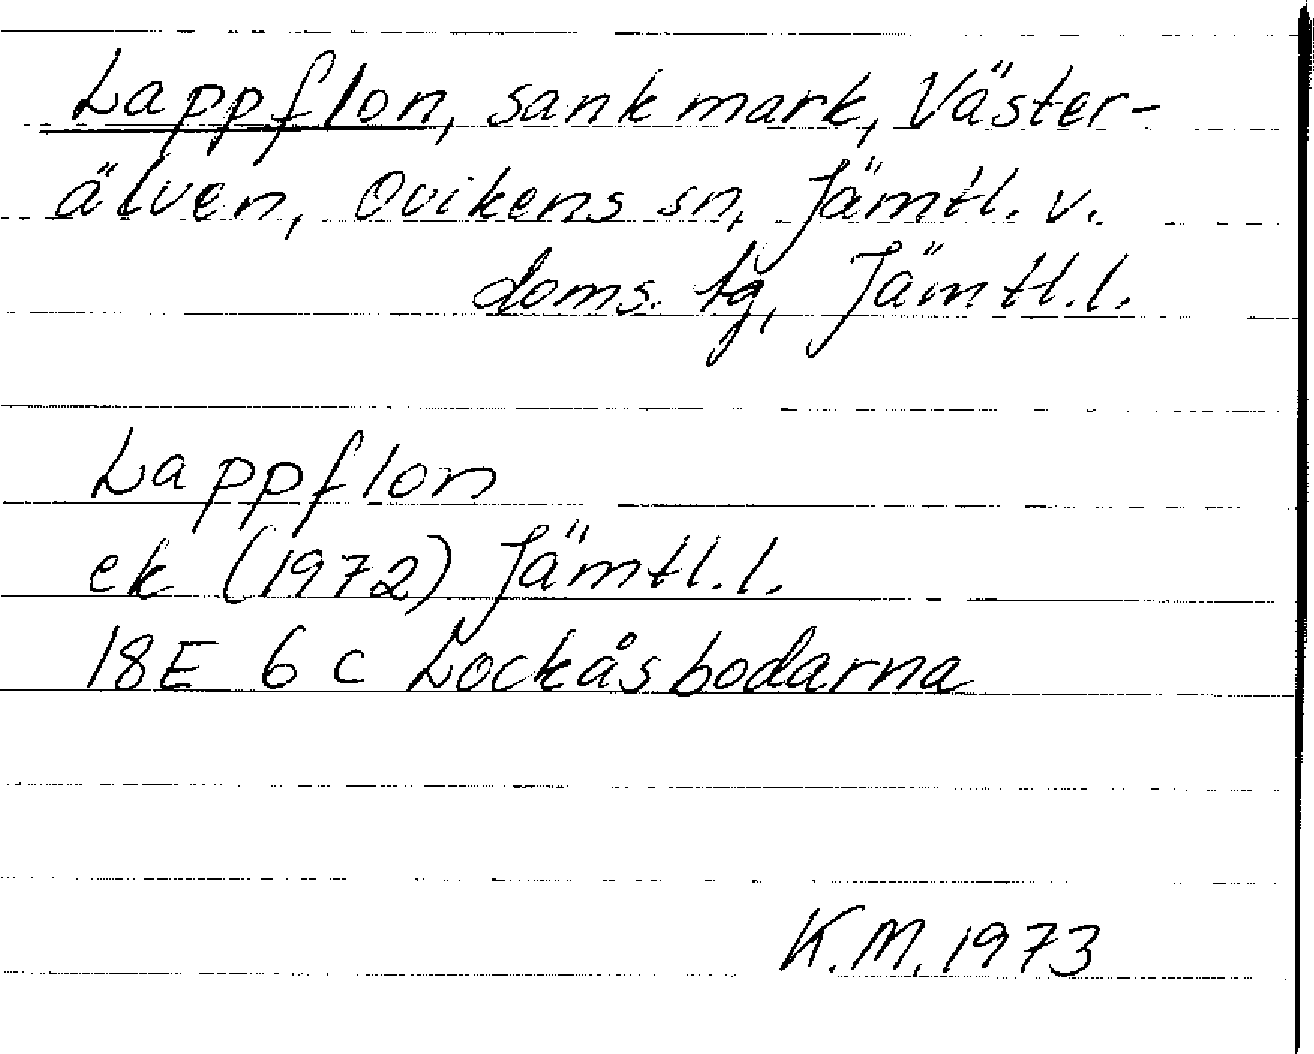 Lappflon, sank mark, Väster-
älven, Ovikens sn, Jämtl. v.
doms. tg, Jämtl.l.
Lappflon
ek (1972) Jämtl.l.
18E 6 c Lockåsbodarna
K.M. 1973